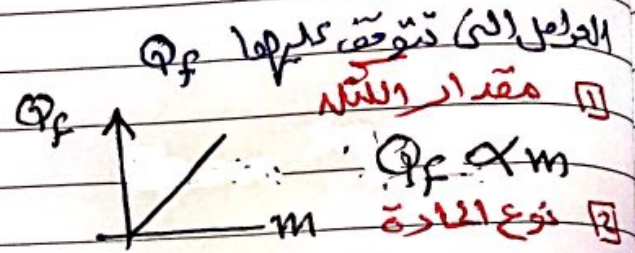 العوامل التي تتوقف عليها Qf
1 مقدار الكتلة
Qf
Qf ∝ m
m
2 نوع المادة